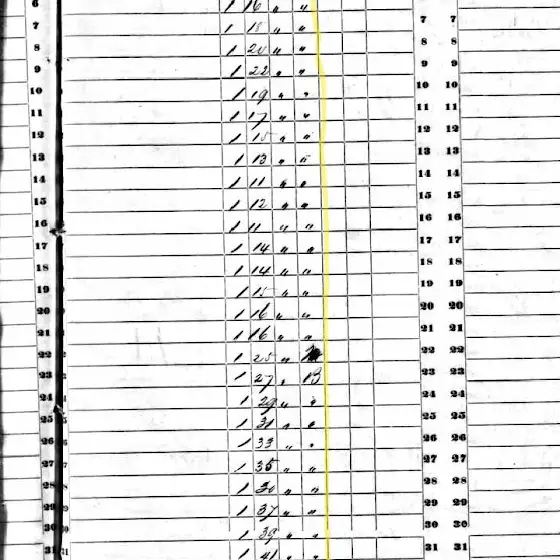 6 1 16 " "
1 18 " " 7 7
8 1 20 " " 8 8
9 1 22 " " 9 9
10 1 19 " " 10 10
11 1 17 " " 11 11
12 1 15 " " 12 12
13 1 13 " " 13 13
14 1 11 " " 14 14
15 1 12 " " 15 15
16 1 11 " " 16 16
17 1 14 " " 17 17
18 1 14 " " 18 18
19 1 15 " " 19 19
20 1 16 " " 20 20
21 1 16 " " 21 21
22 1 25 " 22 22
23 1 27 " B 23 23
24 1 29 " " 24 24
25 1 31 " " 25 25
26 1 33 " " 26 26
27 1 35 " " 27 27
28 1 " " 28 28
29 1 37 " " 29 29
30 1 39 " " 30 30
31 1 41 " " 31 31